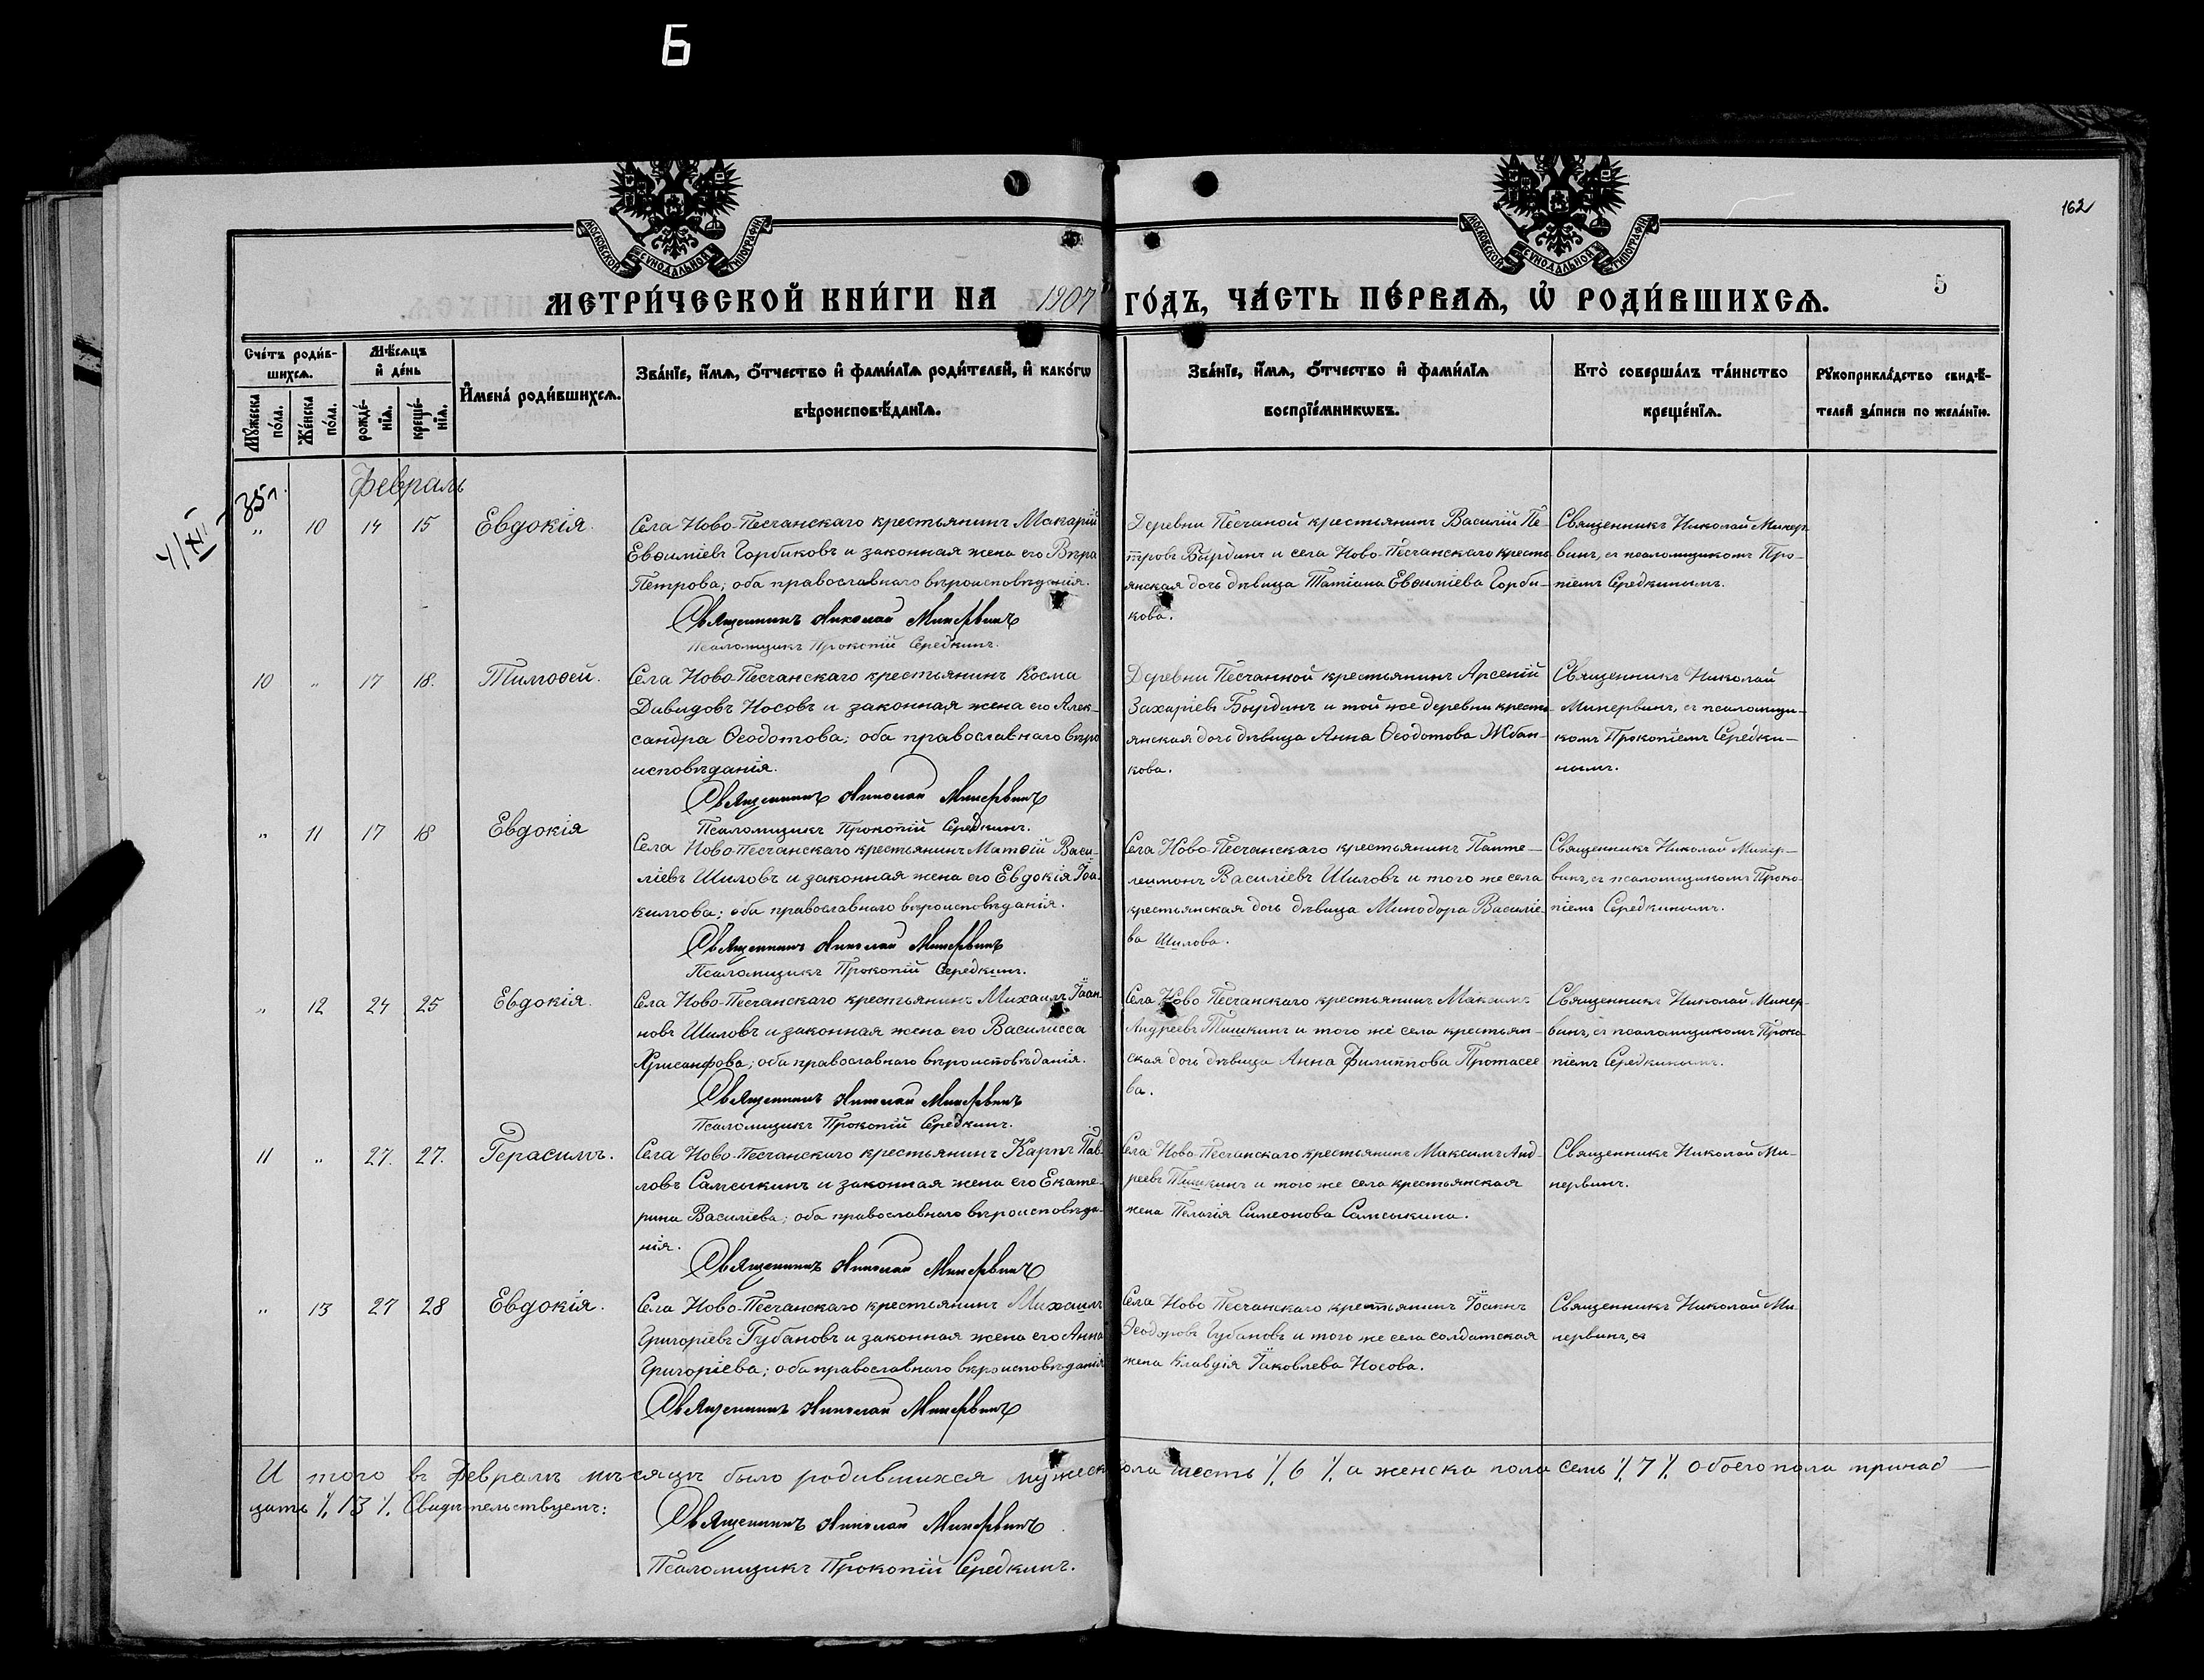 Б
162
МОСКОВСКОЙ СѴНОДАЛЬНОЙ ТИПОГРАФІИ
МОСКОВСКОЙ СѴНОДАЛЬНОЙ ТИПОГРАФІИ
5
МЕТРИ́ЧЕСКОЙ КНИ́ГИ НА 1907 ГО́ДЪ, ЧА́СТЬ ПЕ́РВАѦ, Ѽ РОДИ́ВШИХСѦ.
Сче́тъ роди́в-
шихсѧ.
Мꙋ́жеска по́ла.
Же́нска по́ла.
Мѣ́сѧцъ
и҆ де́нь
рожде́-нїѧ.
креще́-нїѧ.
И҆мена̀ роди́вшихсѧ.
Зва́нїе, и҆́мѧ, ѻ҆́тчество и҆ фами́лїѧ роди́телей, и҆ како́гѡ
вѣроисповѣ́данїѧ.
Зва́нїе, и҆́мѧ, ѻ҆́тчество и҆ фами́лїѧ
воспрїе́мникѡвъ.
Кто̀ соверша́лъ та́инство
креще́нїѧ.
Рꙋкоприкла́дство свидѣ́-
телей за́писи по жела́нїю.
Февраль
35л.
4/XII
„ 10 14 15 Евдокія.
Села Ново-Песчанскаго крестьянинъ Макарій
Евѳиміевъ Горбиковъ и законная жена его Вѣра
Петрова; оба православнаго вѣроисповѣданія.
Священникъ Николай Минервинъ
Псаломщикъ Прокопій Середкинъ.
Деревни Песчаной крестьянинъ Василій Пе-
тровъ Бырдинъ и села Ново-Песчанскаго кресть-
янская дочь дѣвица Татіана Евѳиміева Горби-
кова.
Священникъ Николай Минер-
винъ, съ псаломщикомъ Про-
піемъ Середкинымъ.
10 „ 17 18. Тимоѳей.
Села Ново-Песчанскаго крестьянинъ Косма
Давидовъ Носовъ и законная жена его Алек-
сандра Ѳеодотова; оба православнаго вѣро
исповѣданія.
Священникъ Николай Минервинъ
Псаломщикъ Прокопій Середкинъ.
Деревни Песчанной крестьянинъ Арсеній
Захаріевъ Бырдинъ и той же деревни кресть-
янская дочь дѣвица Анна Ѳеодотова Жбан-
кова.
Священникъ Николай
Минервинъ, съ псаломщи-
комъ Прокопіемъ Середки-
нымъ.
„ 11 17 18 Евдокія
Села Ново-Песчанскаго крестьянинъ Матѳій Васи-
ліевъ Шиловъ и законная жена его Евдокія Іоа-
кимова; оба православнаго вѣроисповѣданія.
Священникъ Николай Минервинъ
Псаломщикъ Прокопій Середкинъ.
Села Ново-Песчанскаго крестьянинъ Панте-
леимонъ Василіевъ Шиловъ и того же села
крестьянская дочь дѣвица Минодора Василіе-
ва Шилова.
Священникъ Николай Минер-
винъ, съ псаломщикомъ Проко-
піемъ Середкинымъ.
„ 12 24 25 Евдокія.
Села Ново-Песчанскаго крестьянинъ Михаилъ Іоан-
новъ Шиловъ и законная жена его Василисса
Хрисанфова; оба православнаго вѣроисповѣданія.
Священникъ Николай Минервинъ
Псаломщикъ Прокопій Середкинъ.
Села Ново Песчанскаго крестьянинъ Максимъ
Андреевъ Тишкинъ и того же села крестьян-
ская дочь дѣвица Анна Филиппова Протасее
ва.
Священникъ Николай Минер-
винъ, съ псаломщикомъ Проко-
піемъ Середкинымъ.
11 „ 27. 27. Герасимъ.
Села Ново-Песчанскаго крестьянинъ Карпъ Пав-
ловъ Самсыкинъ и законная жена его Екате-
рина Василіева; оба православнаго вѣроисповѣда-
нія.
Священникъ Николай Минервинъ
Села Ново-Песчанскаго крестьянинъ Максимъ Анд-
реевъ Тишкинъ и того же села крестьянская
жена Пелагія Симеонова Самсыкина.
Священникъ Николай Ми-
нервинъ.
„ 13 27 28 Евдокія.
Села Ново-Песчанскаго крестьянинъ Михаилъ
Григоріевъ Губановъ и законная жена его Анна
Григоріева; оба православнаго вѣроисповѣданія
Священникъ Николай Минервинъ
Села Ново Песчанскаго крестьянинъ Іоаннъ
Ѳеодоровъ Губановъ и того же села солдатская
жена Клавдія Іаковлева Носова.
Священникъ Николай Ми
нервинъ, съ
И того въ февралѣ мѣсяцѣ было родившихся мужеск пола шесть ⁒ 6 ⁒ а женска пола семь ⁒ 7 ⁒ обоего пола тринад-
цать ⁒ 13 ⁒ Свидѣтельствуемъ:
Священникъ Николай Минервинъ
Псаломщикъ Прокопій Середкинъ.